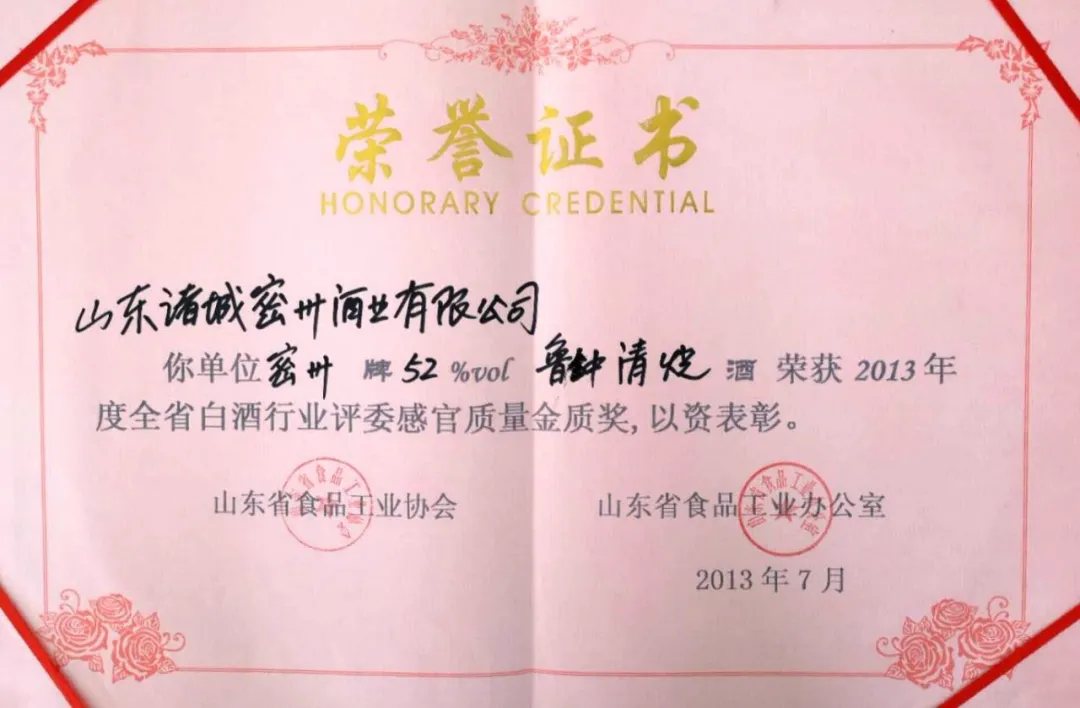 荣誉证书
HONORARY CREDENTIAL
山东诸城密州酒业有限公司
你单位密州 牌 52 %vol 鲁钟清烧 酒 荣获 2013 年
度全省白酒行业评委感官质量金质奖, 以资表彰。
山东省食品工业协会 山东省食品工业办公室
2013 年 7 月